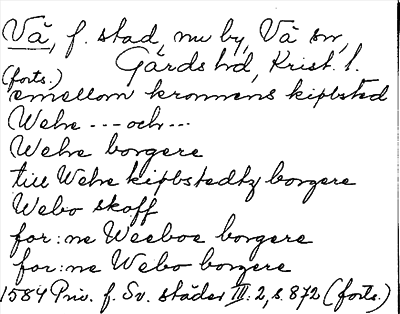 Vä, f. stad, nu by, Vä sn,
Gärds hd, Krist. l.
(forts.)
emellom kronnens kiöbsted
Wehe --- och ---
Wehe borgere
till Wehe kiöbstedtz borgere
Webo skaff
for:ne Weeboe borgere
for:ne Webo borgere
1584 Priv. f. Sv. städer III:2, s. 872 (forts.)